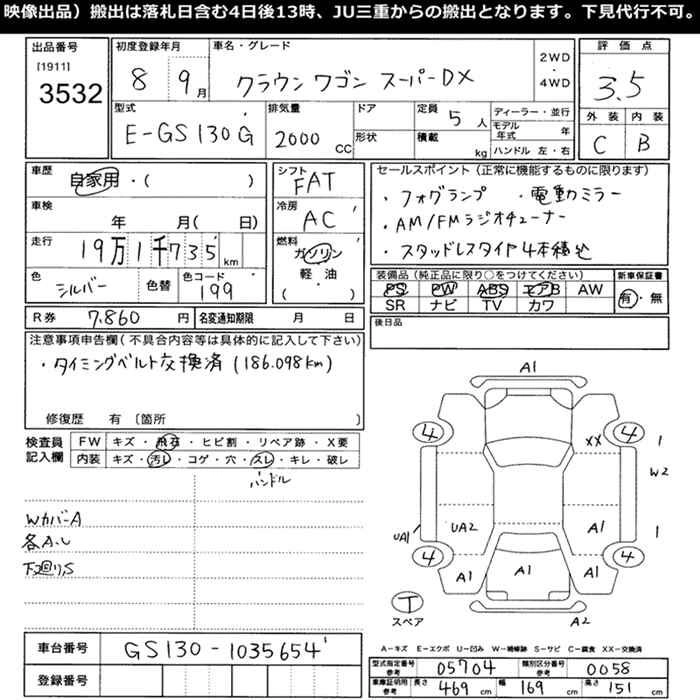 映像出品）搬出は落札日含む4日後13時、JU三重からの搬出となります。下見代行不可。
出品番号 初度登録年月 車名・グレード 2WD・4WD 評価点
[1911]
3532 8 9月 クラウン ワゴン スーパーDX 3.5
型式 排気量 ドア 定員 5人 ディーラー・並行 外装 内装
E-GS130G 2000 CC 形状 積載 kg モデル年式 年 C B
ハンドル 左・右
車歴 自家用・( ) シフト FAT セールスポイント (正常に機能するものに限ります)
車検 年 月( 日) 冷房 AC ・フォグランプ ・電動ミラー
・AM/FMラジオチューナー
走行 19万1千735km 燃料 ガソリン ・スタッドレスタイヤ4本積込
軽・油
( )
色 シルバー 色替 色コード 199 装備品 (純正品に限り○をつけてください) 新車保証書
PS PW ABS エアB AW 有・無
SR ナビ TV カワ
R券 7,860 円 名変通知期限 月 日 後日品
注意事項申告欄(不具合内容等は具体的に記入して下さい)
・タイミングベルト交換済 (186.098km)
修復歴 有 〔箇所 〕
検査員記入欄 FW キズ・飛石・ヒビ割・リペア跡・X要
内装 キズ・汚レ・コゲ・穴・スレ・キレ・破レ
ハンドル
WカバーA
各A.U
下廻り,S
A1
4 4
XX 1
W2
UA1 UA2 A1 1
4 4
A1 A1 A1
T
スペア A2
A−キズ E−エクボ U−凹み W−補修跡 S−サビ C−腐食 XX−交換済
車台番号 GS130-1035654
登録番号
型式指定番号 参考 05704 類別区分番号 参考 0058
車庫証明用 参考 長さ 469 cm 幅 169 cm 高さ 151 cm